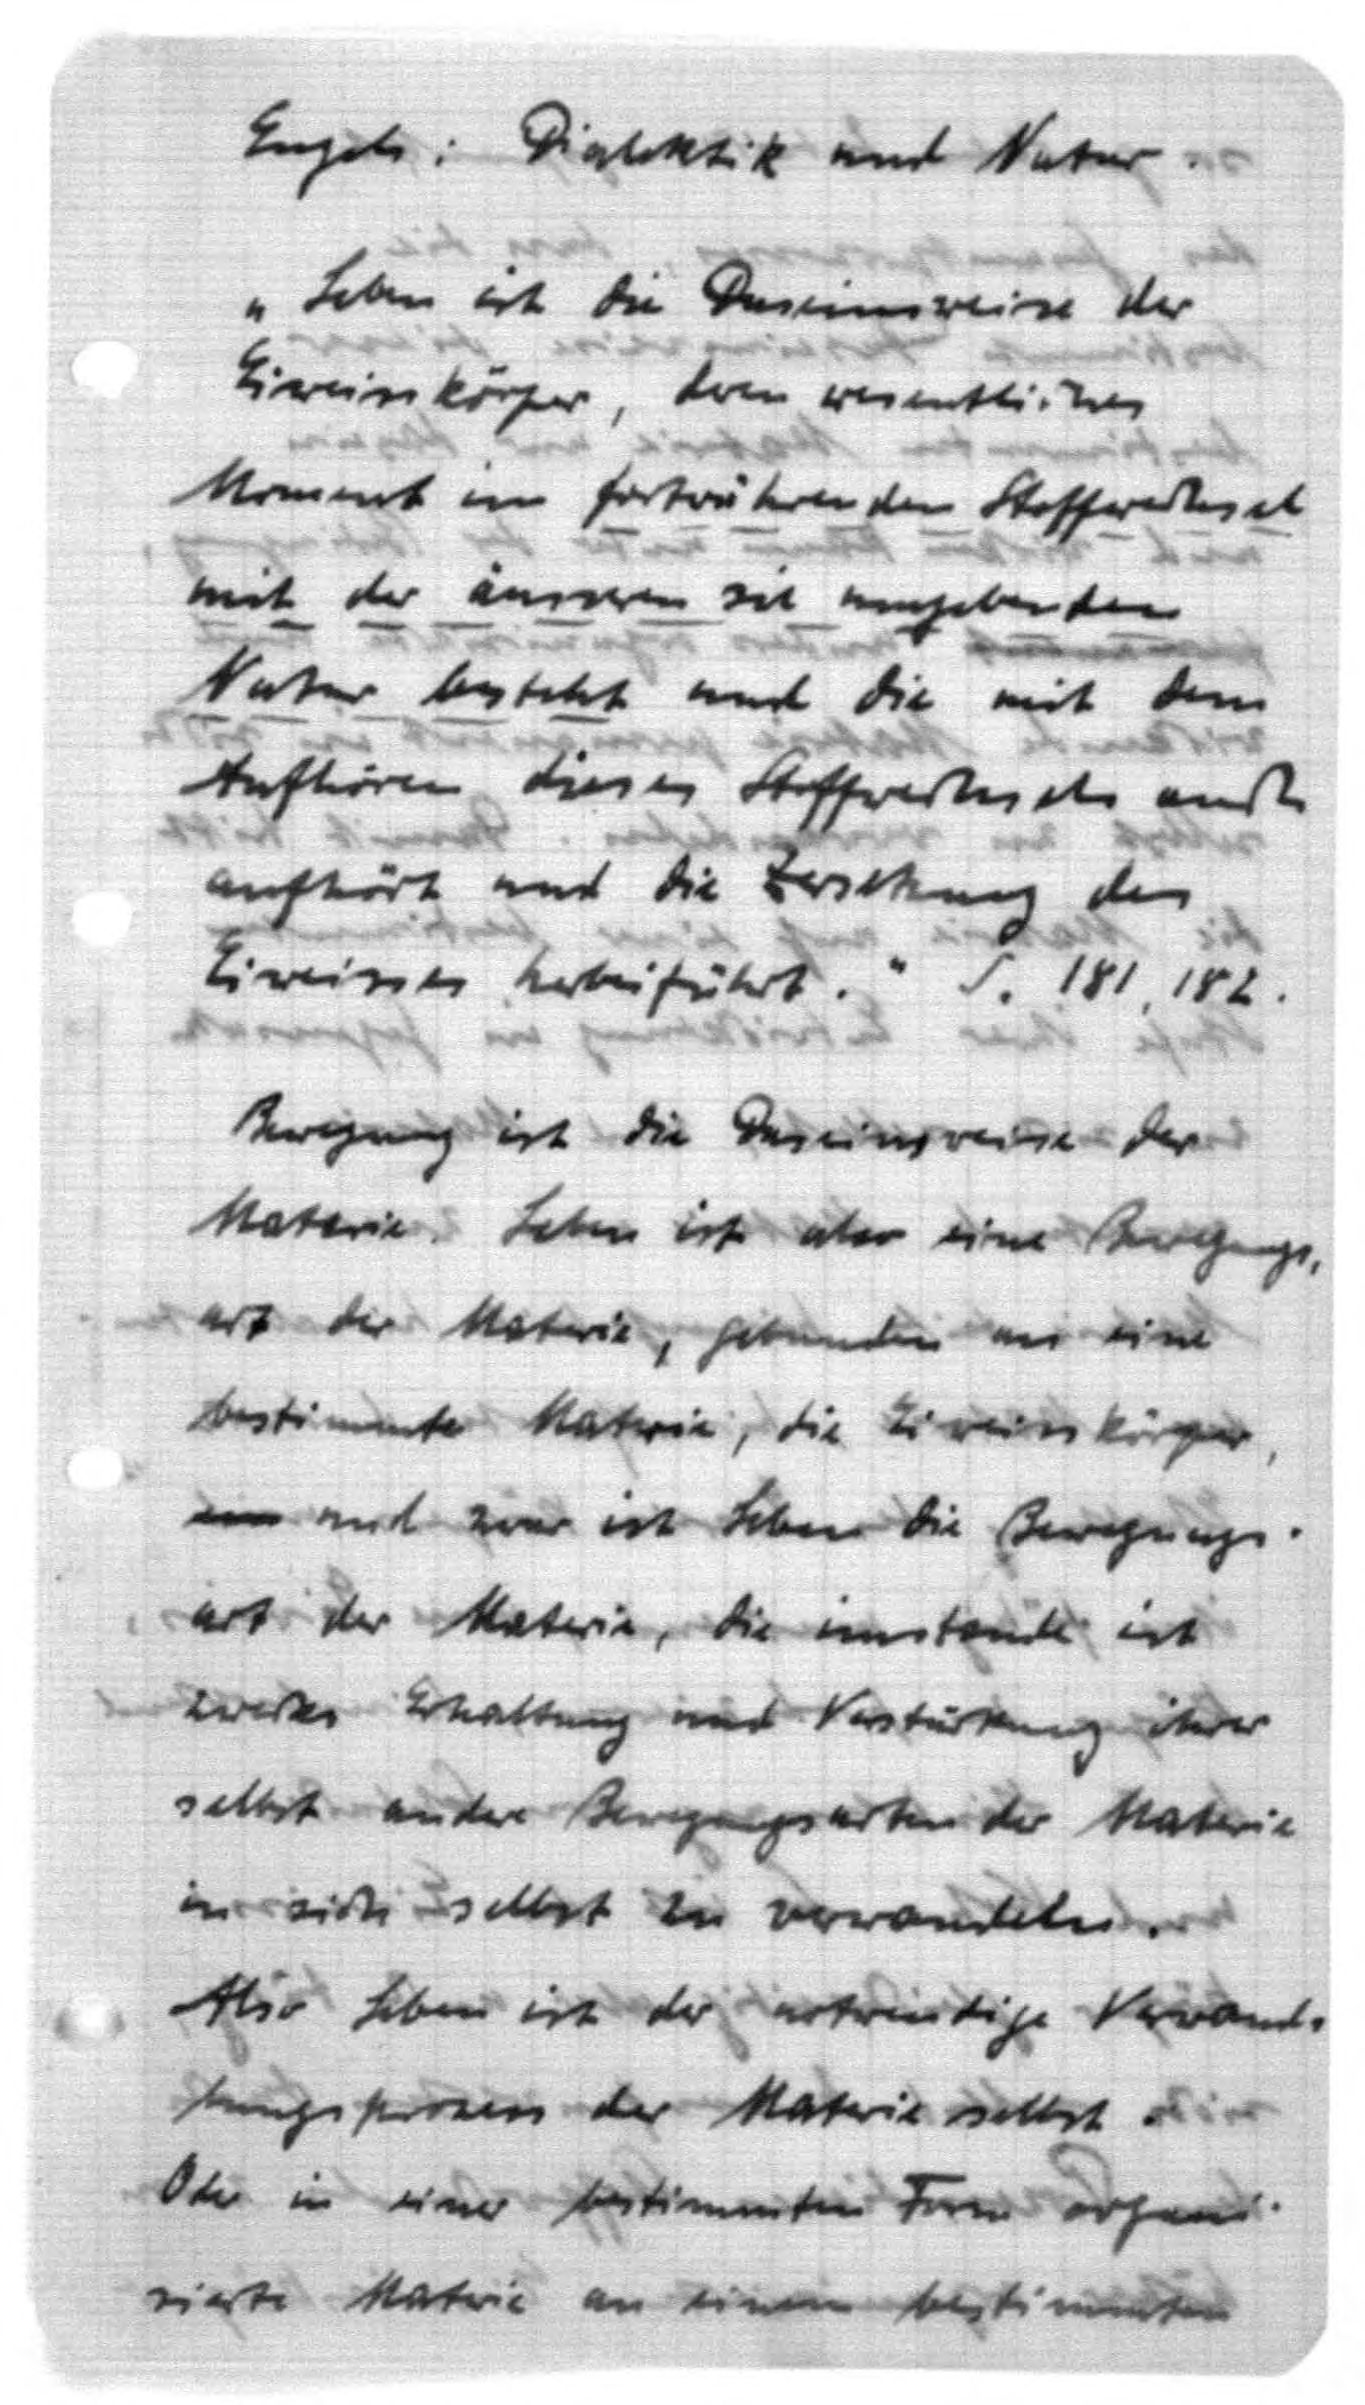 Engels: Dialektik und Natur.
„Leben ist die Daseinsweise der
Eiweisskörper, deren wesentliches
Moment im fortwährenden Stoffwechsel
mit der äusseren sie umgebenden
Natur besteht und die mit dem
Aufhören dieses Stoffwechsels auch
aufhört und die Zersetzung des
Eiweisses herbeiführt." S. 181, 182.
Bewegung ist die Daseinsweise der
Materie. Leben ist also eine Bewegungs-
art der Materie, gebunden an eine
bestimmte Materie, die Eiweisskörper,
und zwar ist Leben die Bewegungs-
art der Materie, die imstande ist
zwecks Erhaltung und Verstärkung ihrer
selbst andere Bewegungsarten der Materie
in sich selbst zu verwandeln.
Also Leben ist der notwendige Verwand-
lungsprozess der Materie selbst.
Oder in einer bestimmten Form organi-
sierte Materie an einem bestimmten